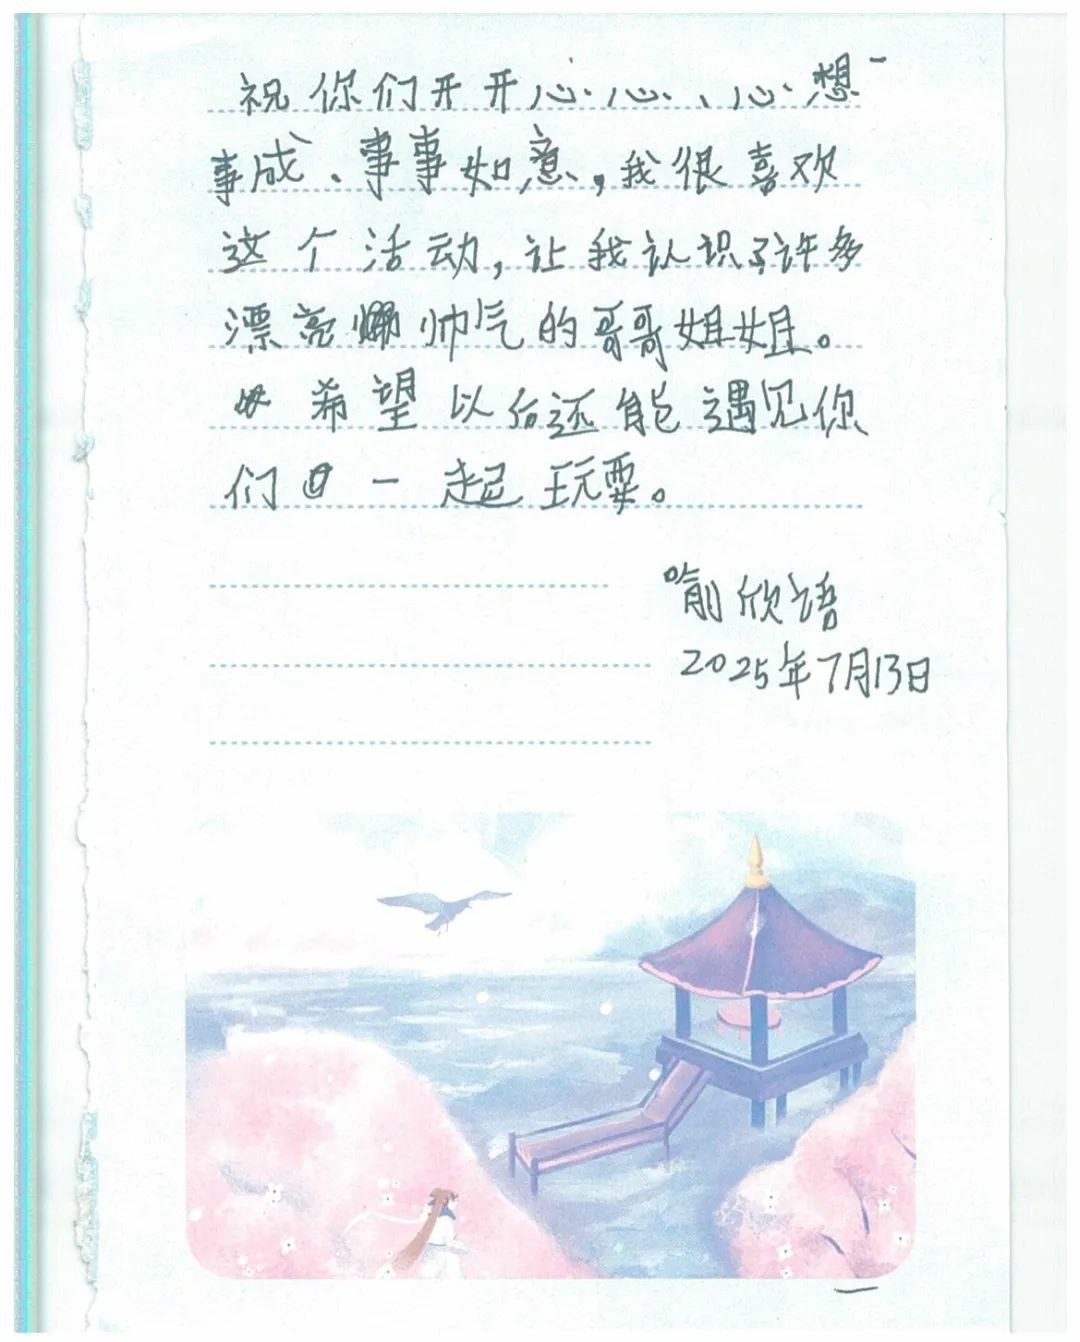 祝你们开开心心、心想
事成、事事如意，我很喜欢
这个活动，让我认识了许多
漂亮帅气的哥哥姐姐。
希望以后还能遇见你
们一起玩耍。
喻欣语
2025年7月13日